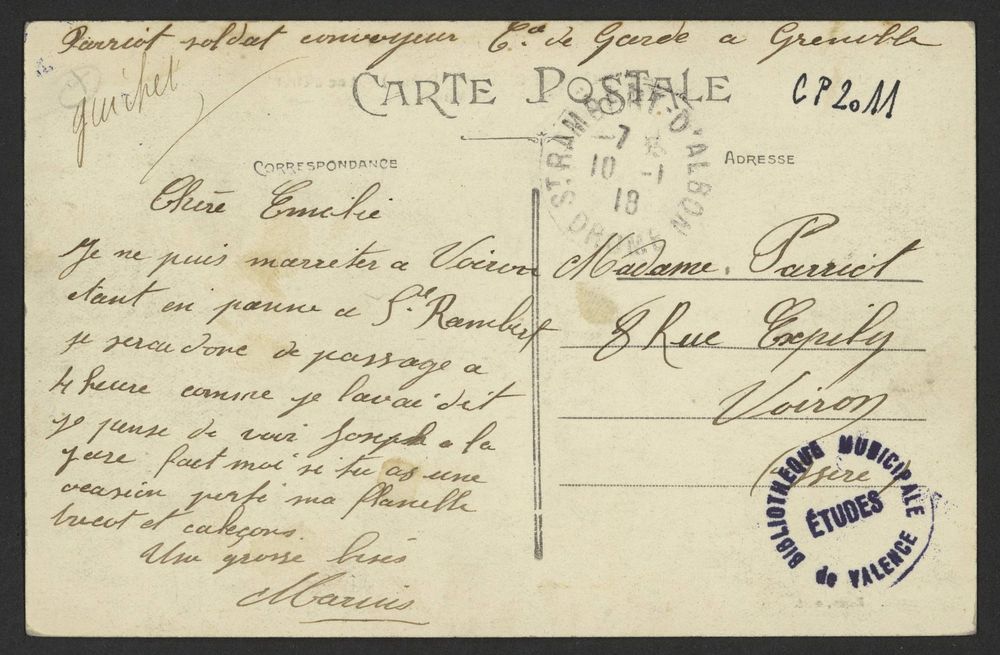 Parriot soldat convoyeur Cie de Garde a Grenoble
guichet
CARTE POSTALE
CP2011
CORRESPONDANCE
ADRESSE
ST. RAMBERT-D'ALBON
DROME
7
10 -1
18
Chère Emelie
Je ne puis marreter a Voiron
etant en panne a St Rambert
je serai donc de passage a
4 heure comme je lavai dit
je pense de voir Joseph a la
gare fait moi si tu as une
ocasion ma flanelle
tricot et caleçons.
Une grosse bises
Marius
Madame. Parriot
8 Rue Expilly
Voiron
(Isère)
BIBLIOTHÈQUE MUNICIPALE
ÉTUDES
de VALENCE